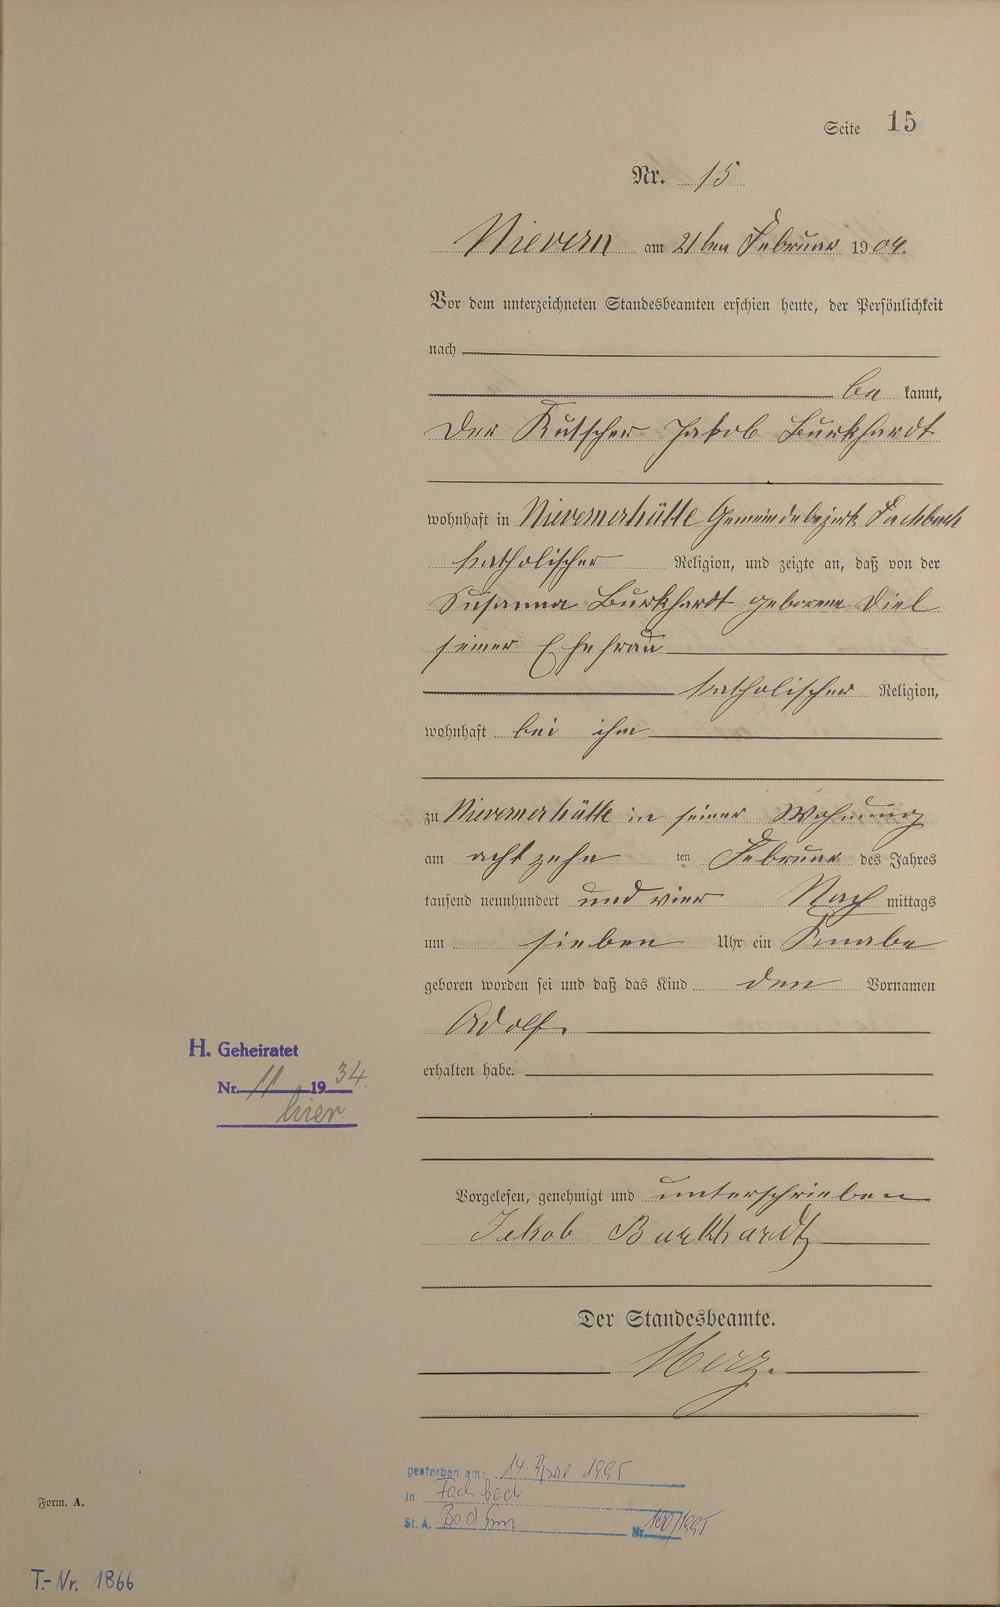 Seite 15
Nr. 15
Nievern am 21ten Februar 1904.
Vor dem unterzeichneten Standesbeamten erschien heute, der Persönlichkeit
nach
be kannt,
der Kutscher Jakob Burkhardt
wohnhaft in Nievernerhütte Gemeindebezirk Fachbach
katholischer Religion, und zeigte an, daß von der
Susanna Burkhardt geborene Diel
seiner Ehefrau
katholischer Religion,
wohnhaft bei ihm
zu Nievernerhütte in seiner Wohnung
am achtzehn ten Februar des Jahres
tausend neunhundert und vier Nach mittags
um sieben Uhr ein Knabe
geboren worden sei und daß das Kind den Vornamen
Adolf.
erhalten habe.
H. Geheiratet
Nr. 11 1934.
hier
Vorgelesen, genehmigt und unterschrieben
Jakob Burkhardt
Der Standesbeamte.
Merz.
gestorben am: 14. April 1995
in Fachbach
St. A. Bad Ems Nr. 100/1995
Form. A.
T.-Nr. 1866